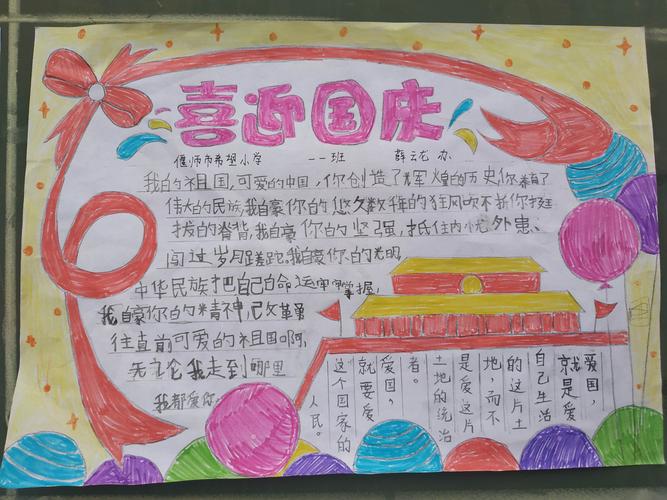 喜迎国庆
偃师市希望小学 一一班 薛云龙 办
我的祖国,可爱的中国,你创造了辉煌的历史,你养育了
伟大的民族,我自豪你的悠久数千年的狂风吹不折你挺
拔的脊背,我自豪你的坚强,抵住内忧外患、
闯过岁月蹉跎,我自豪你的光明,
中华民族把自己的命运掌握,
我自豪你的精神,改革勇
往直前可爱的祖国啊,
无论我走到哪里
我都爱你。
爱国,
就是爱
自己生活
的这片土
地,而不
是爱这片
土地的统治
者。
爱国,
就要爱
这个国家的
人民。